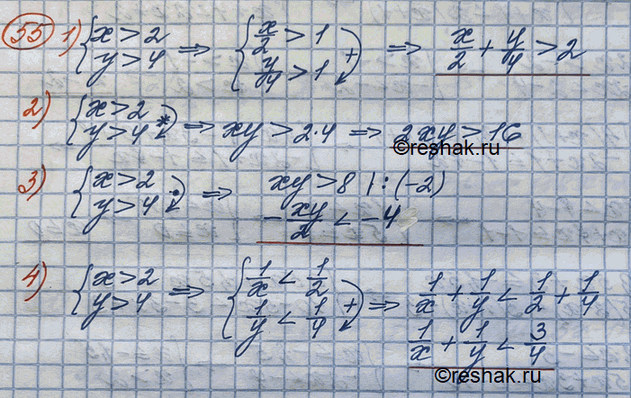 55 1) { x > 2 y > 4 ⇒ { x/2 > 1 y/4 > 1 + ⇒ x/2 + y/4 > 2
2) { x > 2 y > 4 * ⇒ xy > 2·4 ⇒ 2xy > 16
©reshak.ru
3) { x > 2 y > 4 · ⇒ xy > 8 | : (-2)
- xy/2 < -4
4) { x > 2 y > 4 ⇒ { 1/x < 1/2 1/y < 1/4 + ⇒ 1/x + 1/y < 1/2 + 1/4
1/x + 1/y < 3/4
©reshak.ru